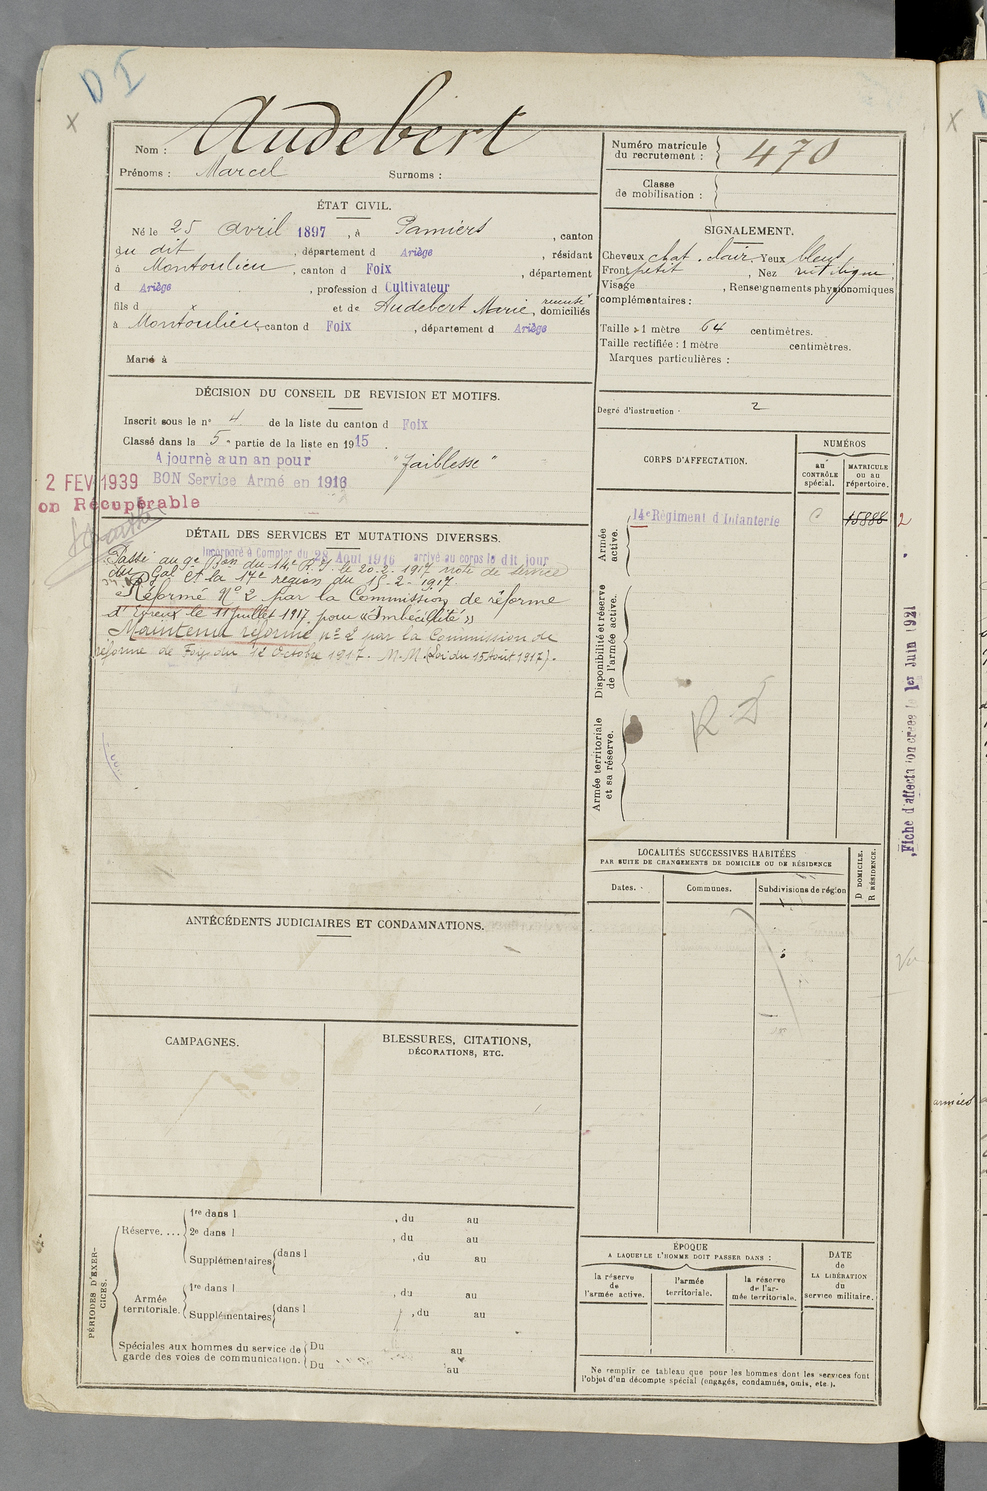 D I
X
Nom : Audebert
Prénoms : Marcel Surnoms :
Numéro matricule du recrutement : 470
Classe de mobilisation :
ÉTAT CIVIL.
Né le 25 avril 1897, à Pamiers, canton
du dit, département d Ariège, résidant
à Montoulieu, canton d Foix, département
d Ariège, profession d Cultivateur
fils d x et de Audebert Marie, domiciliés
à Montoulieu canton d Foix, département d Ariège
Marié à
SIGNALEMENT.
Cheveux chat. clair. Yeux bleus
Front petit, Nez rectiligne;
Visage , Renseignements physionomiques
complémentaires :
Taille : 1 mètre 64 centimètres.
Taille rectifiée : 1 mètre centimètres.
Marques particulières :
Degré d'instruction · 2
DÉCISION DU CONSEIL DE REVISION ET MOTIFS.
Inscrit sous le n° 4 de la liste du canton d Foix
Classé dans la 5e partie de la liste en 1915.
Ajourné a un an pour "Faiblesse"
BON Service Armé en 1916
2 FEV 1939
on Récupérable
DÉTAIL DES SERVICES ET MUTATIONS DIVERSES.
Incorporé à Compter du 28 Aout 1916 arrivé au corps le dit jour
Passé au 9e Bon du 14e R.I. le 20-2-1917 note de service
du Gal Ct la 17e région du 15-2-1917
Réformé N° 2 par la Commission de réforme
d'Evreux le 11 juillet 1917 pour «Imbécillité»
Maintenu réformé n° 2 par la Commission de
réforme de Foix du 12 Octobre 1917. N.M. (Loi du 15 Août 1917).
CORPS D'AFFECTATION.
NUMÉROS
au CONTRÔLE spécial.
MATRICULE ou au répertoire.
Armée active.
14e Régiment d Infanterie
C
15888
2
Disponibilité et réserve de l'armée active.
Armée territoriale et sa réserve.
R. D
Fiche d'affectation créée le 1er Juin 1921
LOCALITÉS SUCCESSIVES HABITÉES
PAR SUITE DE CHANGEMENTS DE DOMICILE OU DE RÉSIDENCE
Dates.
Communes.
Subdivisions de région
D DOMICILE.
R RÉSIDENCE.
ANTÉCÉDENTS JUDICIAIRES ET CONDAMNATIONS.
CAMPAGNES.
BLESSURES, CITATIONS,
DÉCORATIONS, ETC.
armées
PÉRIODES D'EXERCICES.
Réserve....
1re dans l , du au
2e dans l , du au
Supplémentaires dans l , du au
Armée territoriale.
1re dans l , du au
Supplémentaires dans l , du au
Spéciales aux hommes du service de garde des voies de communication.
Du au
Du au
ÉPOQUE
A LAQUELLE L'HOMME DOIT PASSER DANS :
la réserve de l'armée active.
l'armée territoriale.
la réserve de l'armée territoriale.
DATE de LA LIBÉRATION du service militaire.
Ne remplir ce tableau que pour les hommes dont les services font
l'objet d'un décompte spécial (engagés, condamnés, omis, etc.).